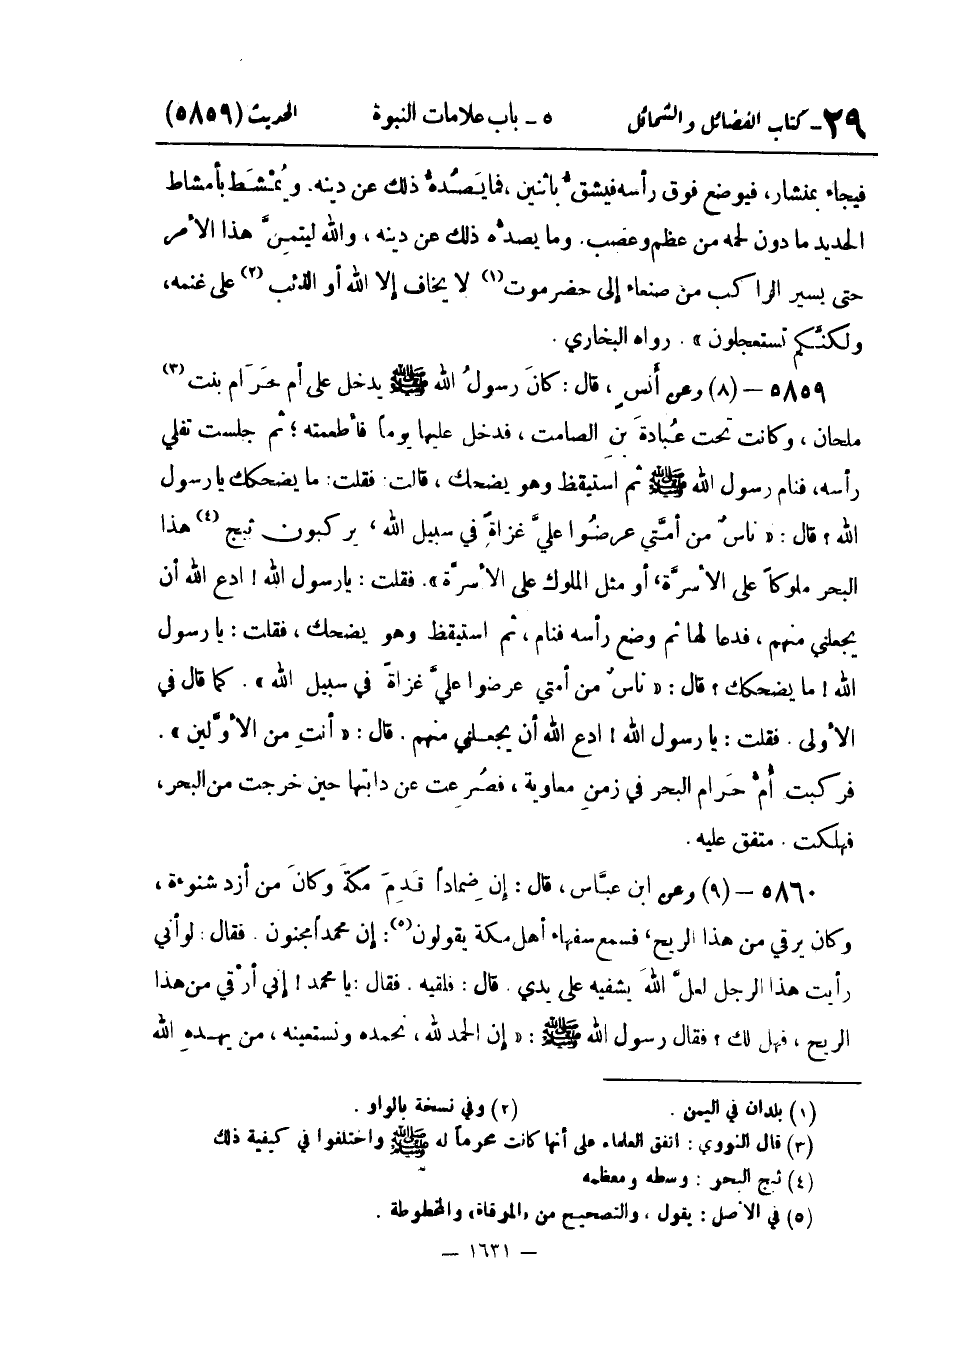 ٢٩ـ كتاب الفضائل والشمائل ٥ ـ باب علامات النبوة الحديث (٥٨٥٩)
فيجاء بمنشار، فيوضع فوق رأسه فيشقُّ باثنين ، فما يَصُدُّهُ ذلك عن دينه. ويُمْشَط بأمشاط
الحديد ما دون لحمه من عظم وعصب. وما يصدُّه ذلك عن دينه ، والله ليتمنَّ هذا الأمر
حتى يسير الراكب من صنعاء إلى حضرموت(١) لا يخاف إلا الله أو الذئب (٢) على غنمه،
ولكنَّكم تستعجلون » . رواه البخاري .
٥٨٥٩ – (٨) وعن أَنسٍ ، قال : كانَ رسولُ الله ﷺ يدخل على أم حَرَام بنت (٣)
ملحان ، وكانت تحت عُبادةَ بنِ الصامت ، فدخل عليها يوماً فأطعمته ؛ ثم جلست تفلي
رأسه، فنام رسول الله ﷺ ثم استيقظ وهو يضحك ، قالت: فقلت: ما يضحكك يا رسول
الله ؟ قال : « ناسٌ من أمَّتي عرضُوا عليَّ غزاةً في سبيل الله ، يركبون ثبج (٤) هذا
البحر ملوكاً على الأسرَّة، أو مثل الملوك على الأسرَّة ». فقلت : يا رسول الله ! ادع الله أن
يجعلني منهم ، فدعا لها ثم وضع رأسه فنام ، ثم استيقظ وهو يضحك ، فقلت : يا رسول
الله ! ما يضحكك ؟ قال : « ناسٌ من أمتي عرضوا عليَّ غزاةً في سبيل الله » . كما قال في
الأولى . فقلت : يا رسول الله ! ادع الله أن يجعلني منهم . قال : « أنتِ من الأوَّلين » .
فركبت أُمُّ حَرَام البحر في زمنِ معاوية ، فصُرِعت عن دابتها حين خرجت من البحر ،
فهلكت . متفق عليه .
٥٨٦٠ – (٩) وعن ابن عبَّاس ، قال : إن ضِماداً قَدِمَ مكةَ وكانَ من أزد شنوءة ،
وكان يرقي من هذا الريح، فسمع سفهاء أهل مكة يقولون(٥): إن محمداً مجنون . فقال : لو أني
رأيت هذا الرجل لعلَّ اللهَ يشفيه على يدي . قال : فلقيه . فقال : يا محمد ! إني أرْقي من هذا
الريح ، فهل لك ؟ فقال رسول الله ﷺ : « إن الحمد لله ، نحمده ونستعينه ، من يهدهِ الله
(١) بلدان في اليمن . (٢) وفي نسخة بالواو .
(٣) قال النووي : اتفق العلماء على أنها كانت محرماً له ﷺ واختلفوا في كيفية ذلك
(٤) ثبج البحر : وسطه ومعظمه
(٥) في الأصل : يقول ، والتصحيح من «المرقاة» والمخطوطة .
— ١٦٣١ —